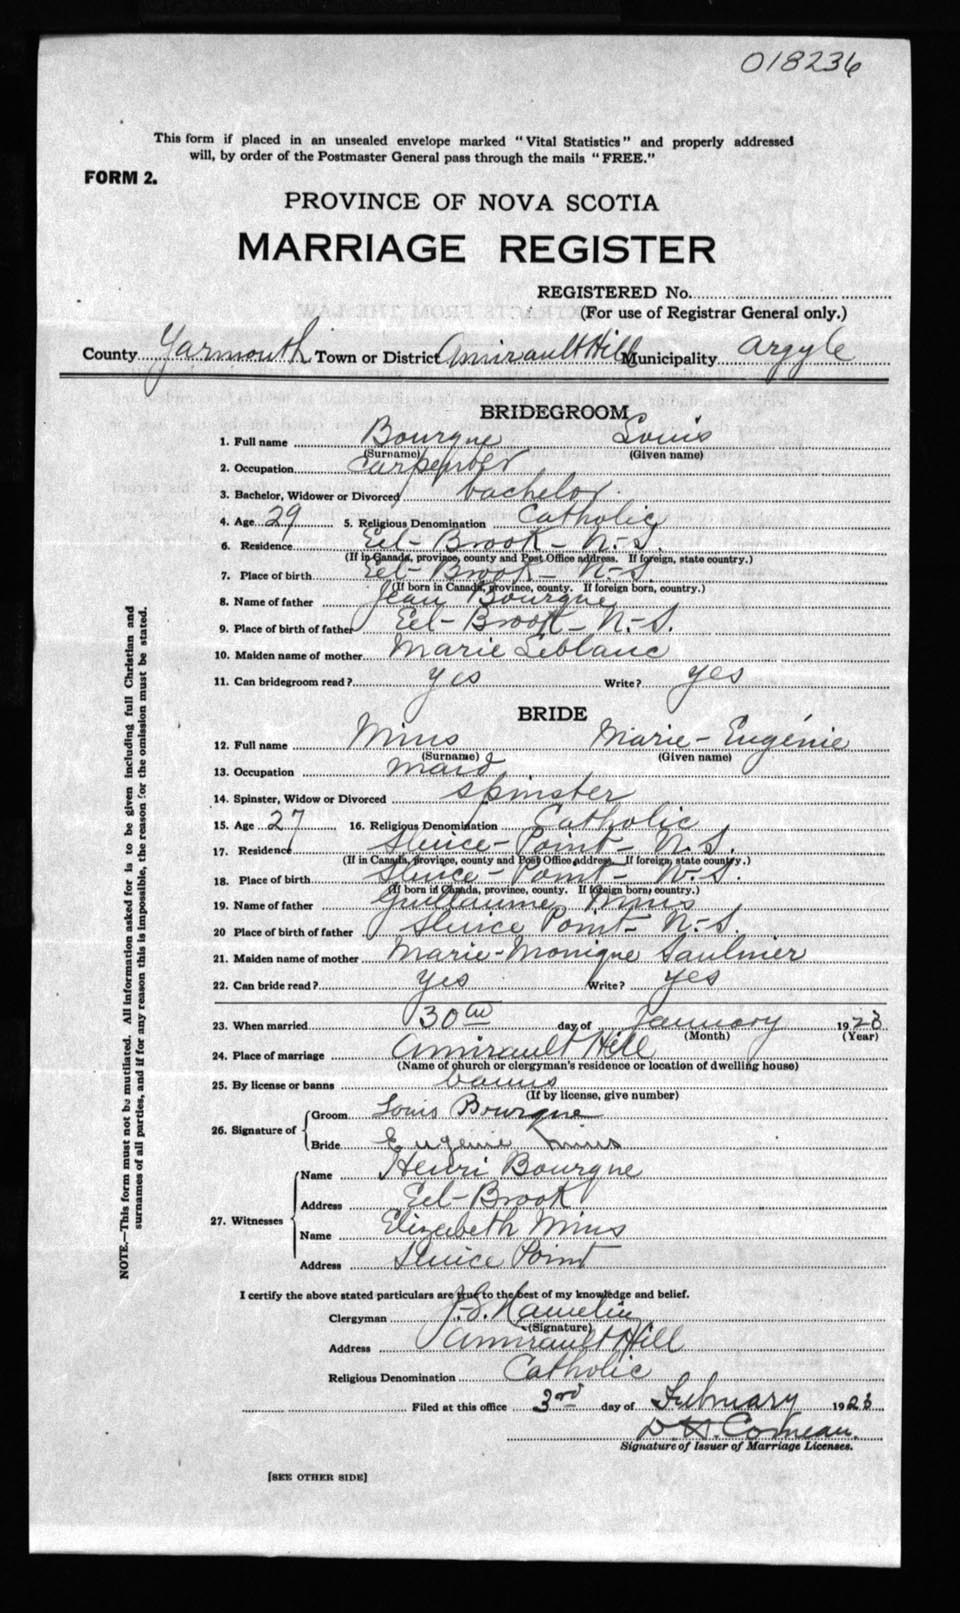 018236
This form if placed in an unsealed envelope marked "Vital Statistics" and properly addressed
will, by order of the Postmaster General pass through the mails "FREE."
FORM 2.
PROVINCE OF NOVA SCOTIA
MARRIAGE REGISTER
REGISTERED No.
(For use of Registrar General only.)
County Yarmouth Town or District Amirault Hill Municipality Argyle
BRIDEGROOM
1. Full name Bourque Louis
(Surname) (Given name)
2. Occupation carpenter
3. Bachelor, Widower or Divorced bachelor.
4. Age 29 5. Religious Denomination Catholic
6. Residence Eel-Brook-N-S.
(If in Canada, province, county and Post Office address. If foreign, state country.)
7. Place of birth Eel-Brook-N-S.
(If born in Canada, province, county. If foreign born, country.)
8. Name of father Jean Bourque
9. Place of birth of father Eel-Brook-N-S.
10. Maiden name of mother Marie Leblanc
11. Can bridegroom read? yes Write? yes
BRIDE
12. Full name Mius Marie-Eugénie
(Surname) (Given name)
13. Occupation maid
14. Spinster, Widow or Divorced spinster
15. Age 27 16. Religious Denomination Catholic
17. Residence Sluice-Point-N.S.
(If in Canada, province, county and Post Office address. If foreign, state country.)
18. Place of birth Sluice-Point-N.S.
(If born in Canada, province, county. If foreign born, country.)
19. Name of father Guillaume Mius
20 Place of birth of father Sluice Point-N-S.
21. Maiden name of mother Marie-Monique Saulnier
22. Can bride read? yes Write? yes
23. When married 30th day of January 1923
(Month) (Year)
24. Place of marriage Amirault Hill
(Name of church or clergyman's residence or location of dwelling house)
25. By license or banns banns
(If by license, give number)
26. Signature of Groom Louis Bourque
Bride Eugénie Mius
27. Witnesses Name Henri Bourque
Address Eel-Brook
Name Elizabeth Mius
Address Sluice Point
I certify the above stated particulars are true to the best of my knowledge and belief.
Clergyman Hamelin
(Signature)
Address Amirault Hill
Religious Denomination Catholic
Filed at this office 3rd day of February 1923
Signature of Issuer of Marriage Licenses.
[SEE OTHER SIDE]
NOTE.—This form must not be mutilated. All information asked for is to be given including full Christian and
surnames of all parties, and if for any reason this is impossible, the reason for the omission must be stated.